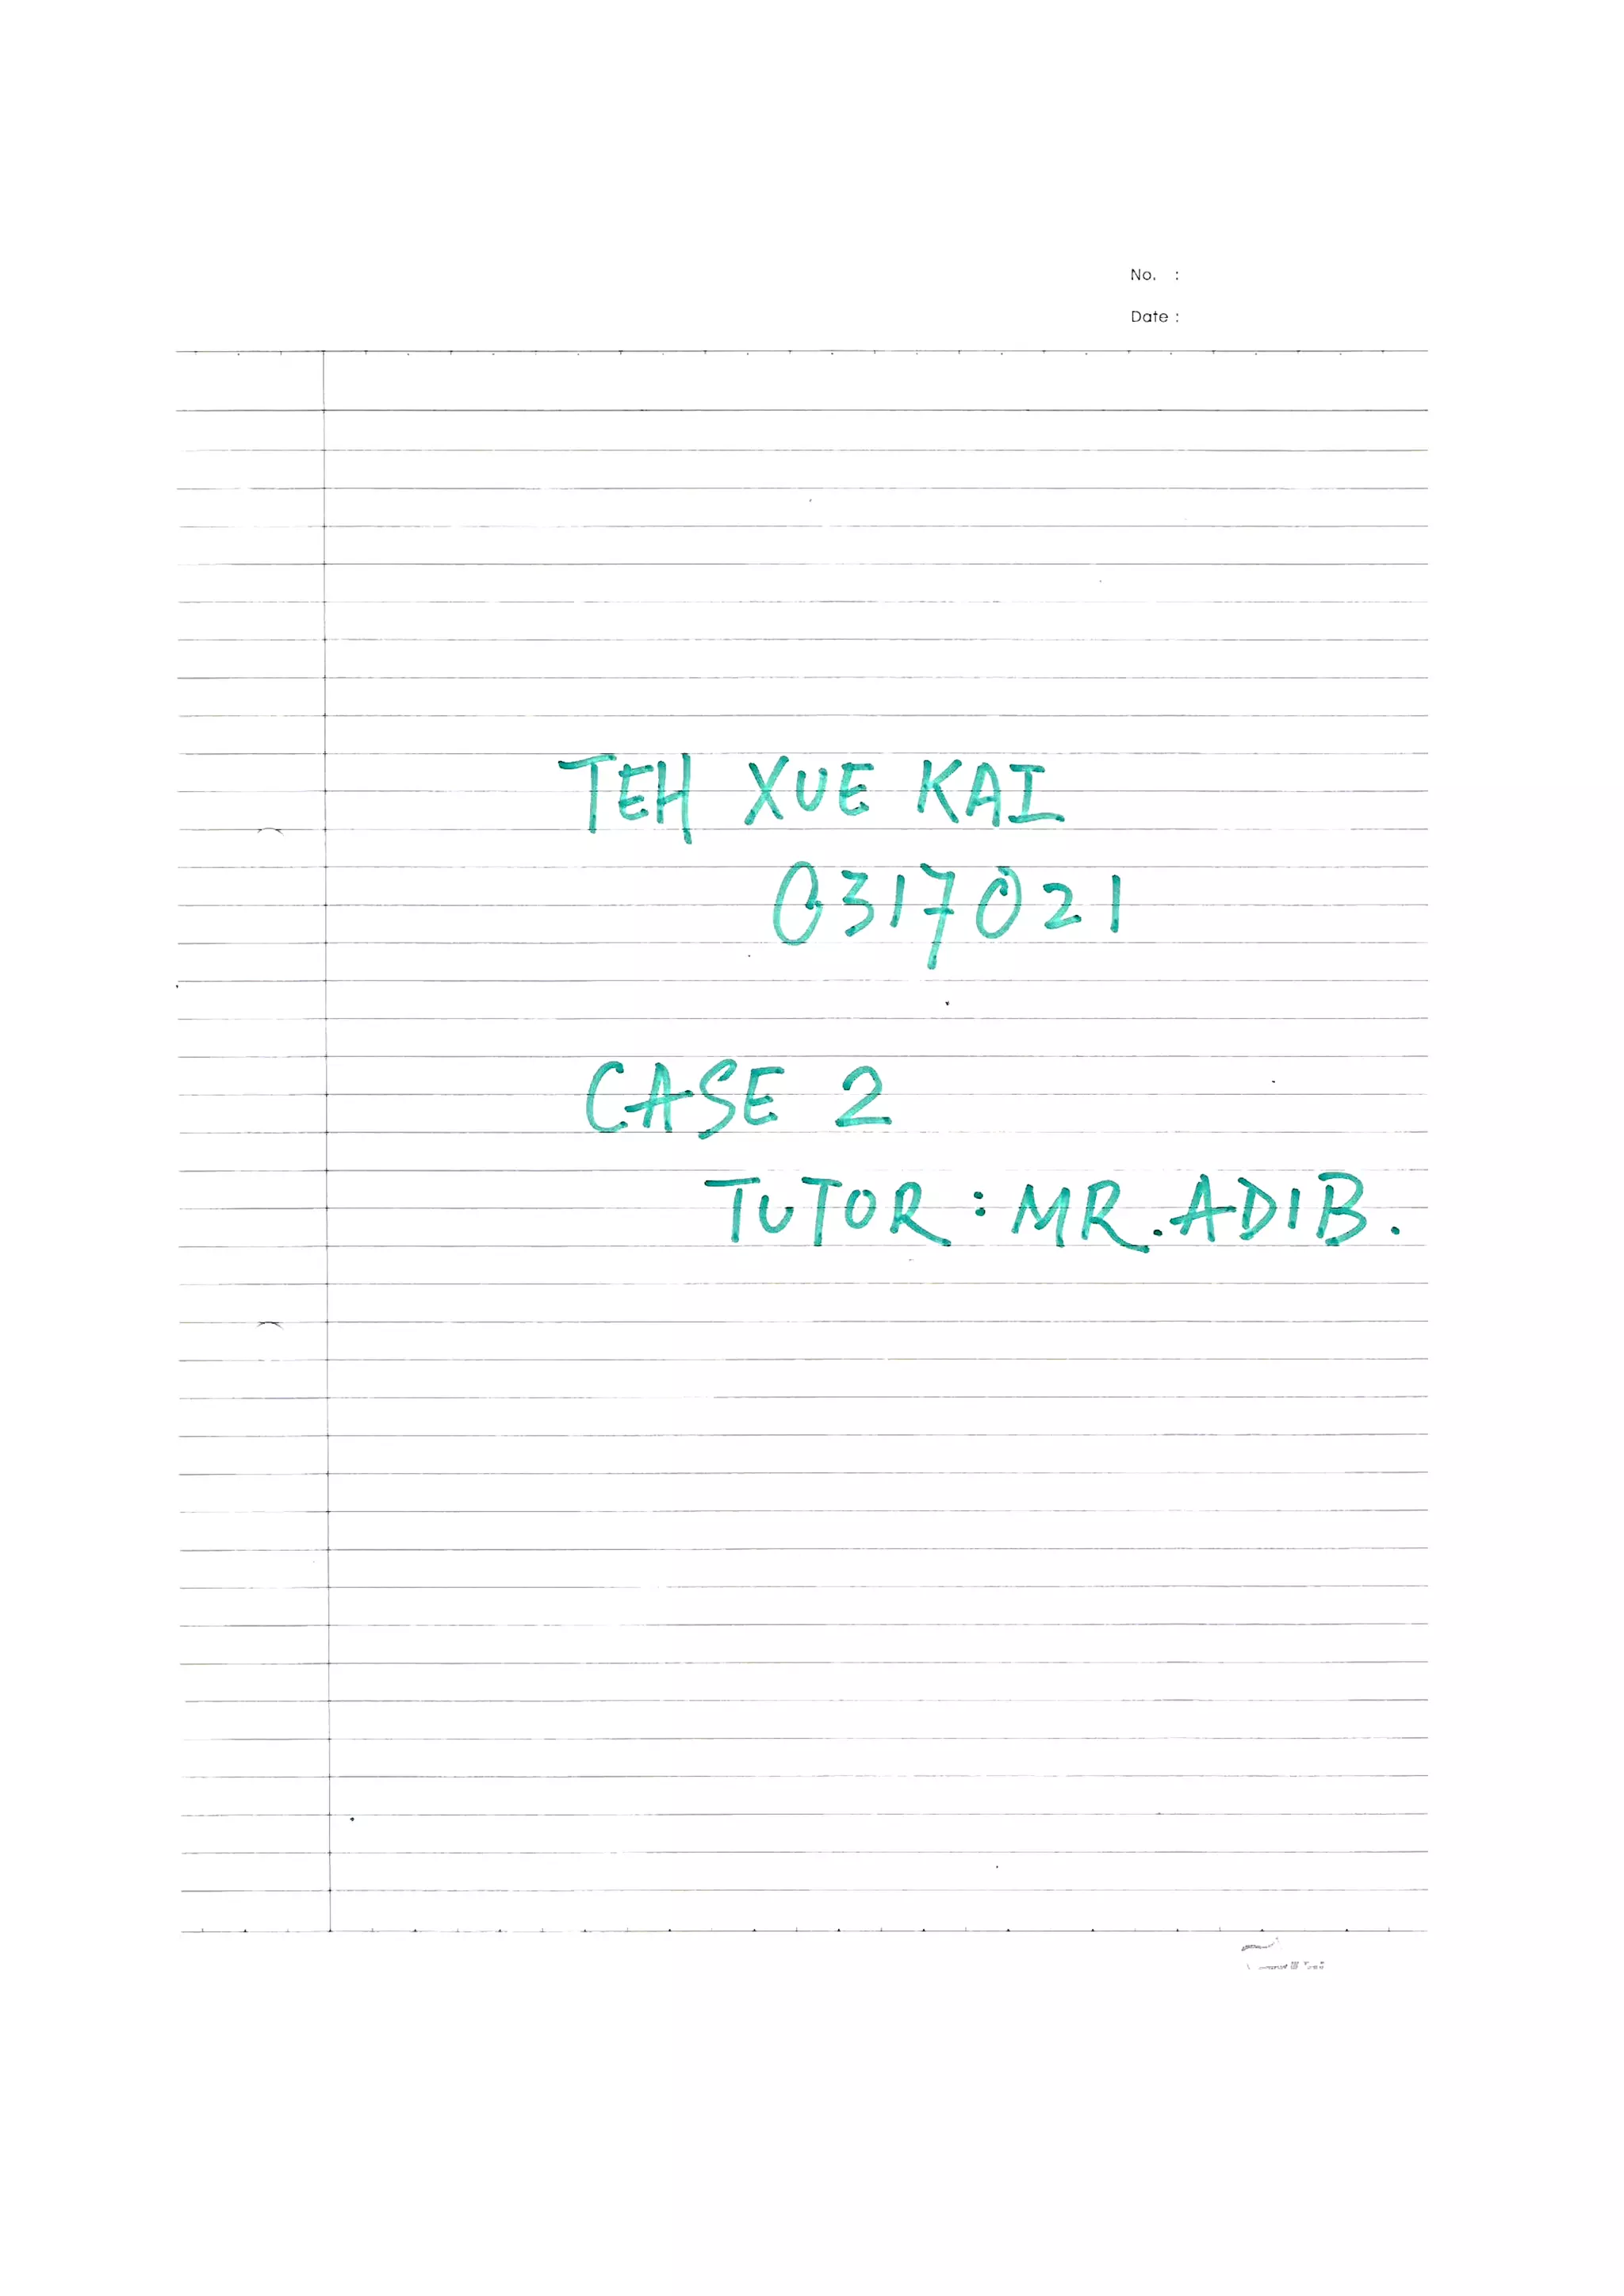 No. :
Date :
TEH XUE KAI
0317021
CASE 2
TUTOR : MR. ADIB.